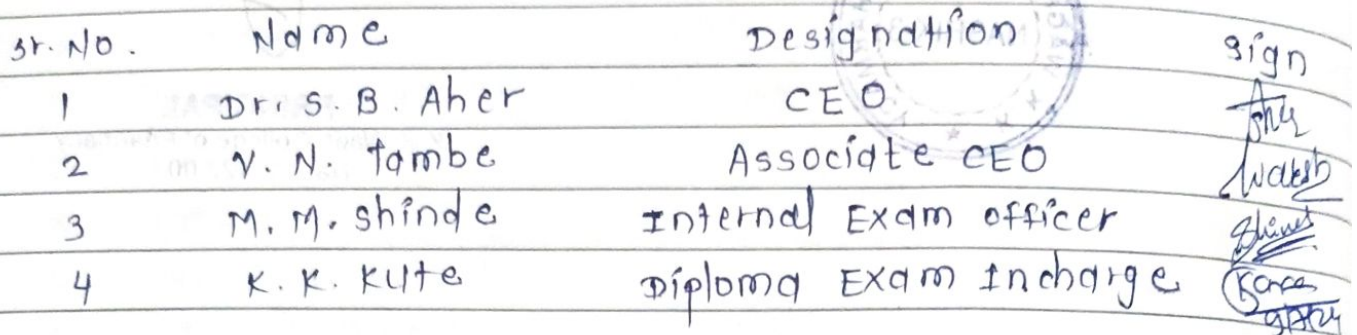 Sr. No. Name Designation Sign
1 Dr. S. B. Aher CEO
2 V. N. Tambe Associate CEO
3 M. M. Shinde Internal Exam officer
4 K. K. Kute Diploma Exam Incharge